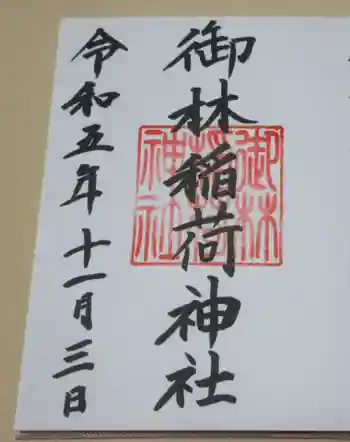 御林稲荷神社
令和五年十一月三日
御林
稲荷
神社